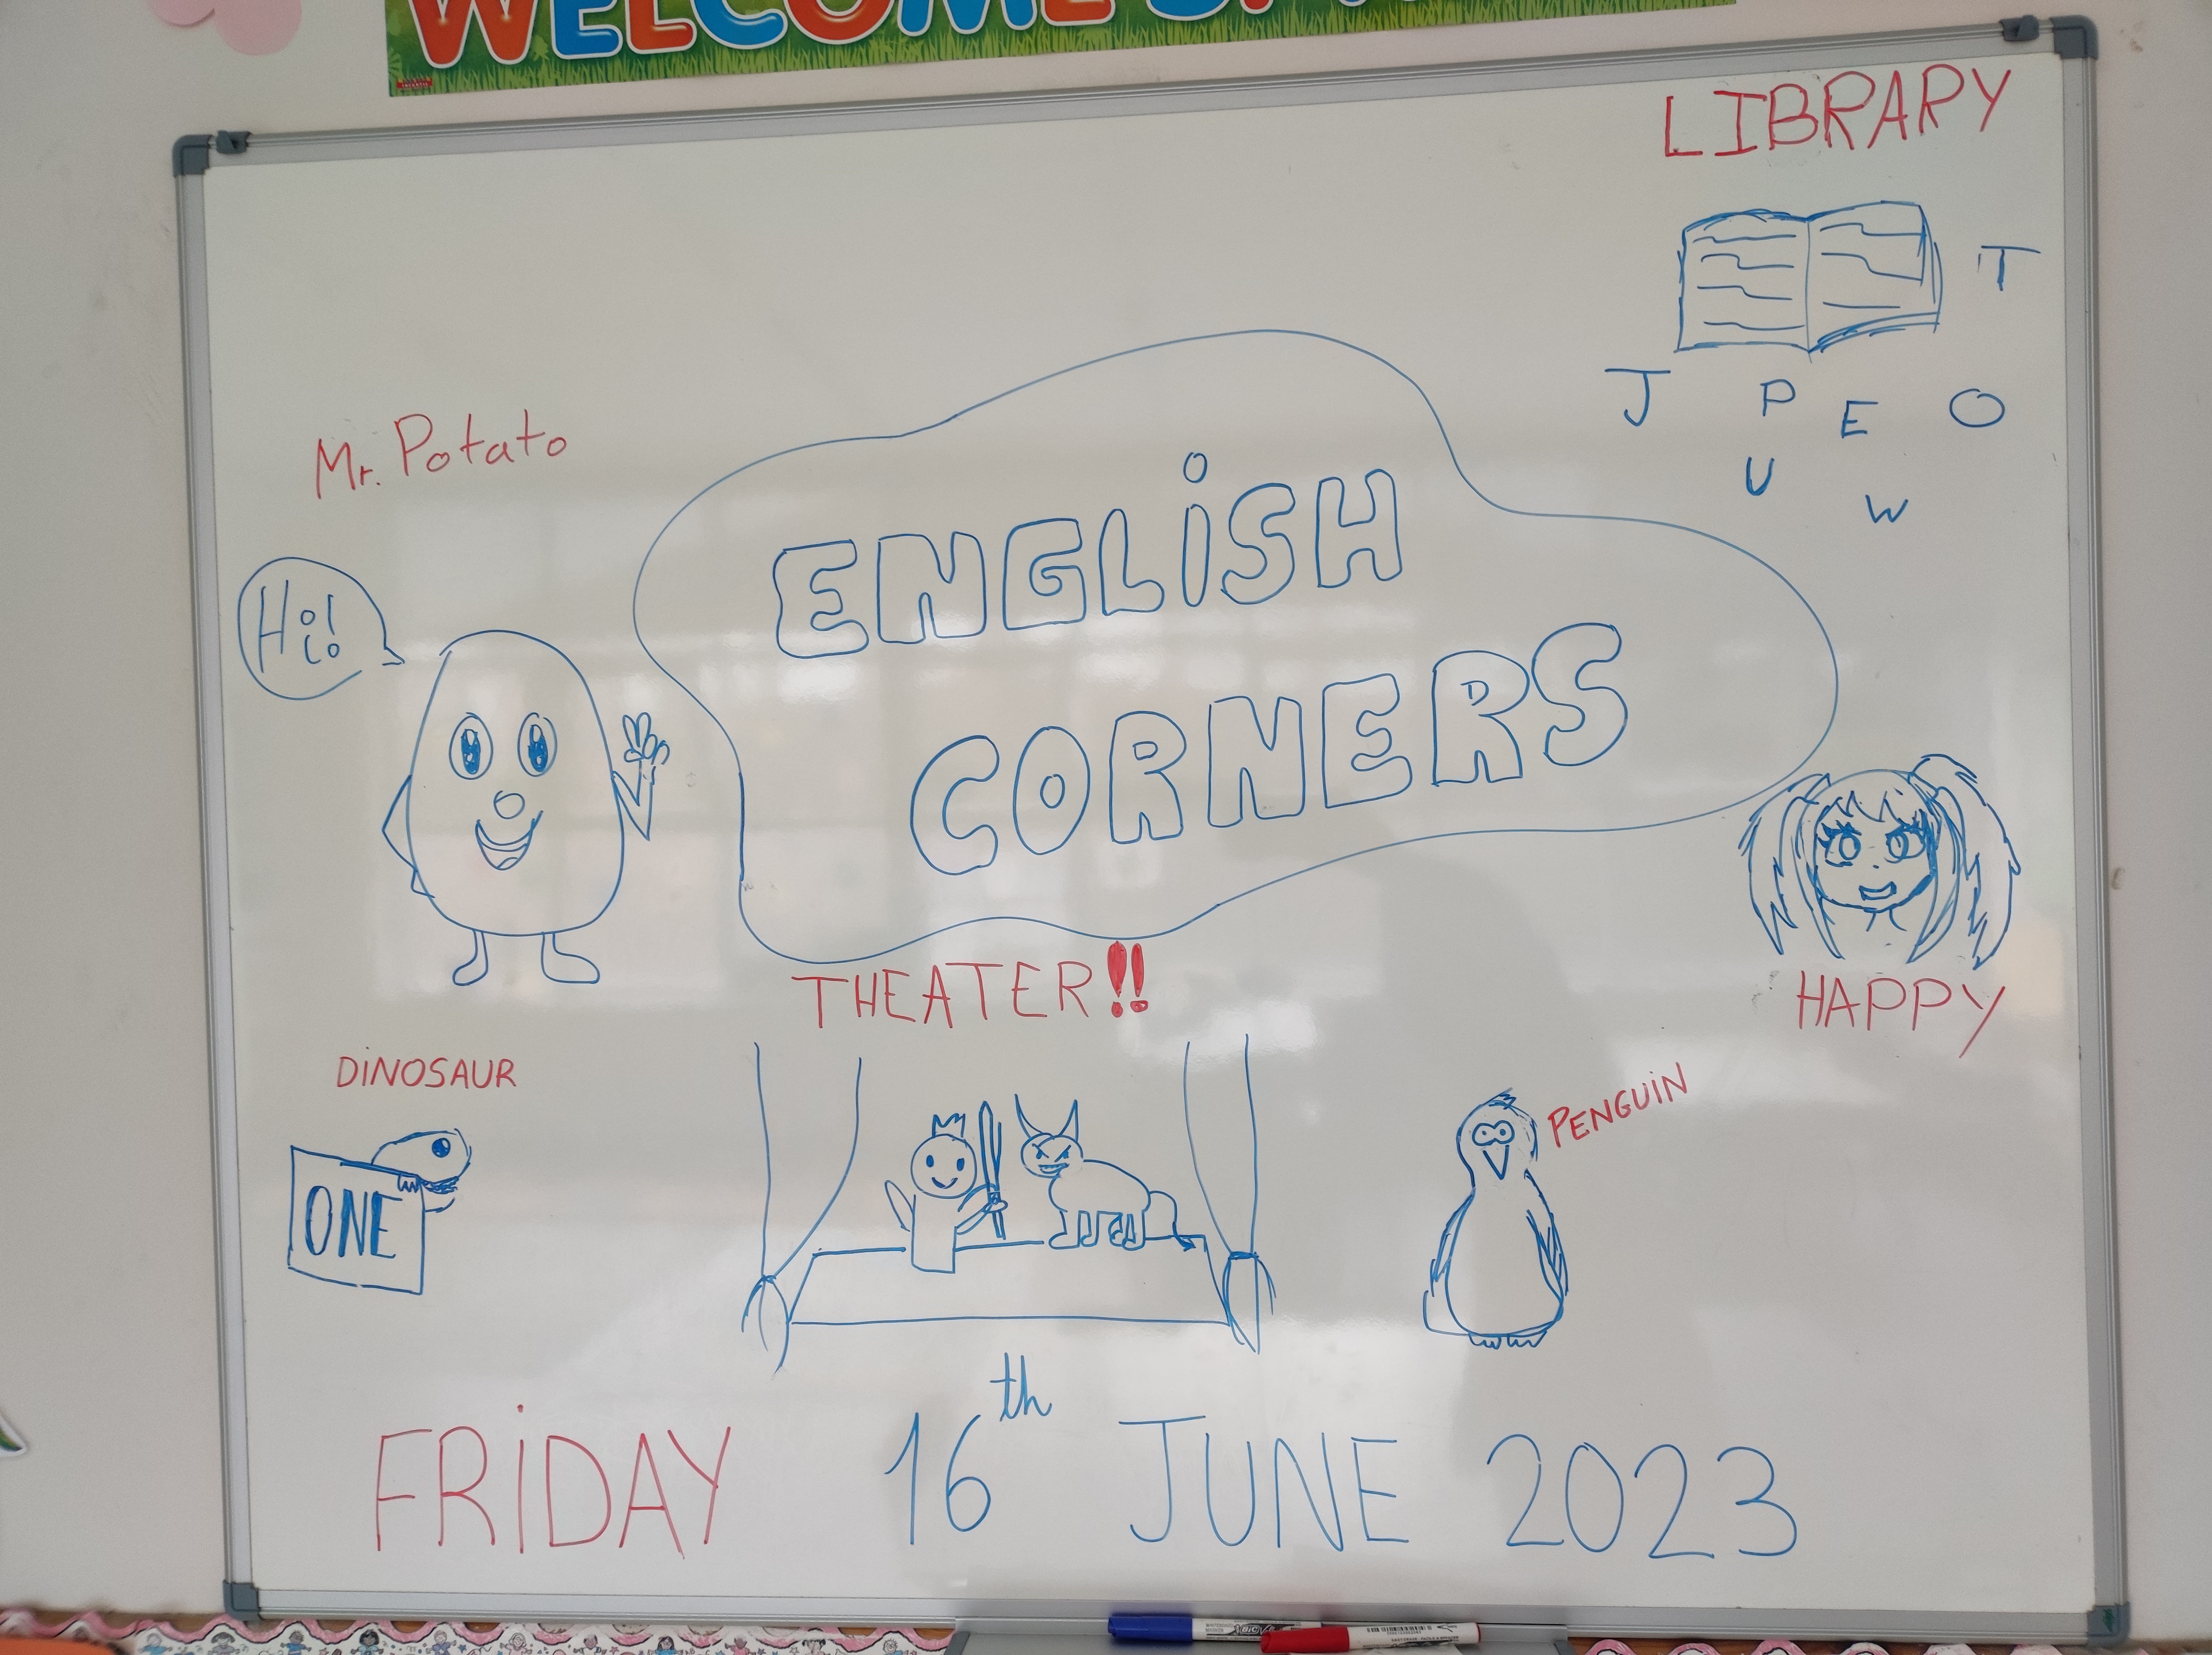 WELCOME
LIBRARY
T
J P E O
U
W
Mr. Potato
Hi!
ENGLiSH
CORNERS
THEATER!!
HAPPY
DiNOSAUR
PENGUiN
ONE
FRiDAY 16th JUNE 2023